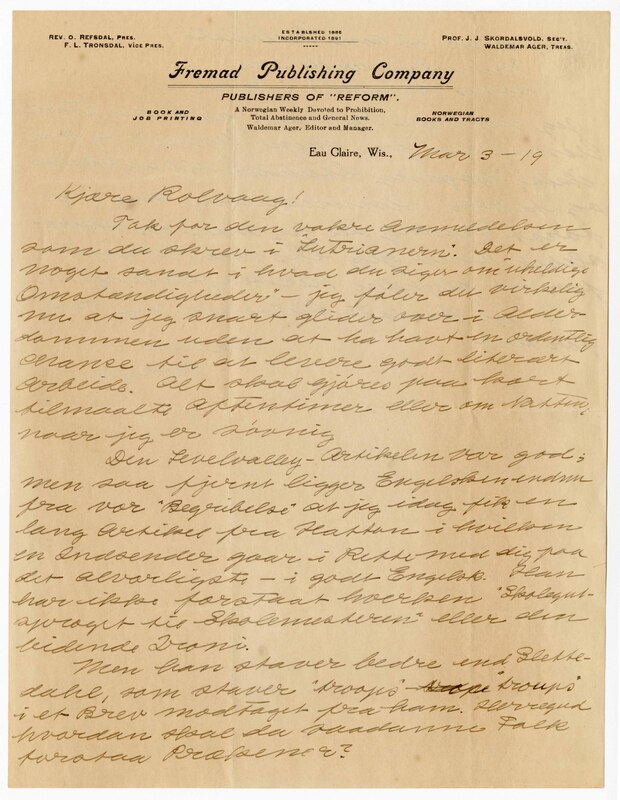 REV. O. REFSDAL, PRES.
F. L. TRONSDAL, VICE PRES.
ESTABLISHED 1886
INCORPORATED 1891
PROF. J. J. SKORDALSVOLD, SEC'T.
WALDEMAR AGER, TREAS.
Fremad Publishing Company
PUBLISHERS OF "REFORM".
BOOK AND
JOB PRINTING
A Norwegian Weekly Devoted to Prohibition,
Total Abstinence and General News.
Waldemar Ager, Editor and Manager.
NORWEGIAN
BOOKS AND TRACTS
Eau Claire, Wis., Mar 3 - 19
Kjære Rolvaag!
Tak for den vakre Anmeldelsen
som du skrev i "Lutrianern". Det er
noget sandt i hvad du siger om "uheldige
Omstændigheder" - jeg føler det virkelig
nu at jeg snart glider over i Alder
dommen uden at ha havt en ordentlig
chance til at levere godt literært
Arbeide. Alt skal gjøres paa kort
tilmaalte Aftentimer eller om Natten,
naar jeg er søvnig
Den Levelvalley-Artikelen var god;
men saa fjernt ligger Engelsken endnu
fra vor "Begribelse" at jeg idag fik en
lang Artikel fra Hatton i hvilken
en Indsender gaar i Rette med dig paa
det alvorligste - i godt Engelsk. Han
har ikke forstaat hverken "Skolegut-
sproget til Skolemesteren" eller den
bidende Ironi.
Men han staver bedre end Blette-
dahl, som staver "troops" "troups"
i et Brev modtaget fra ham. Herregud
hvordan skal da saadanne Folk
forstaa Præksener?